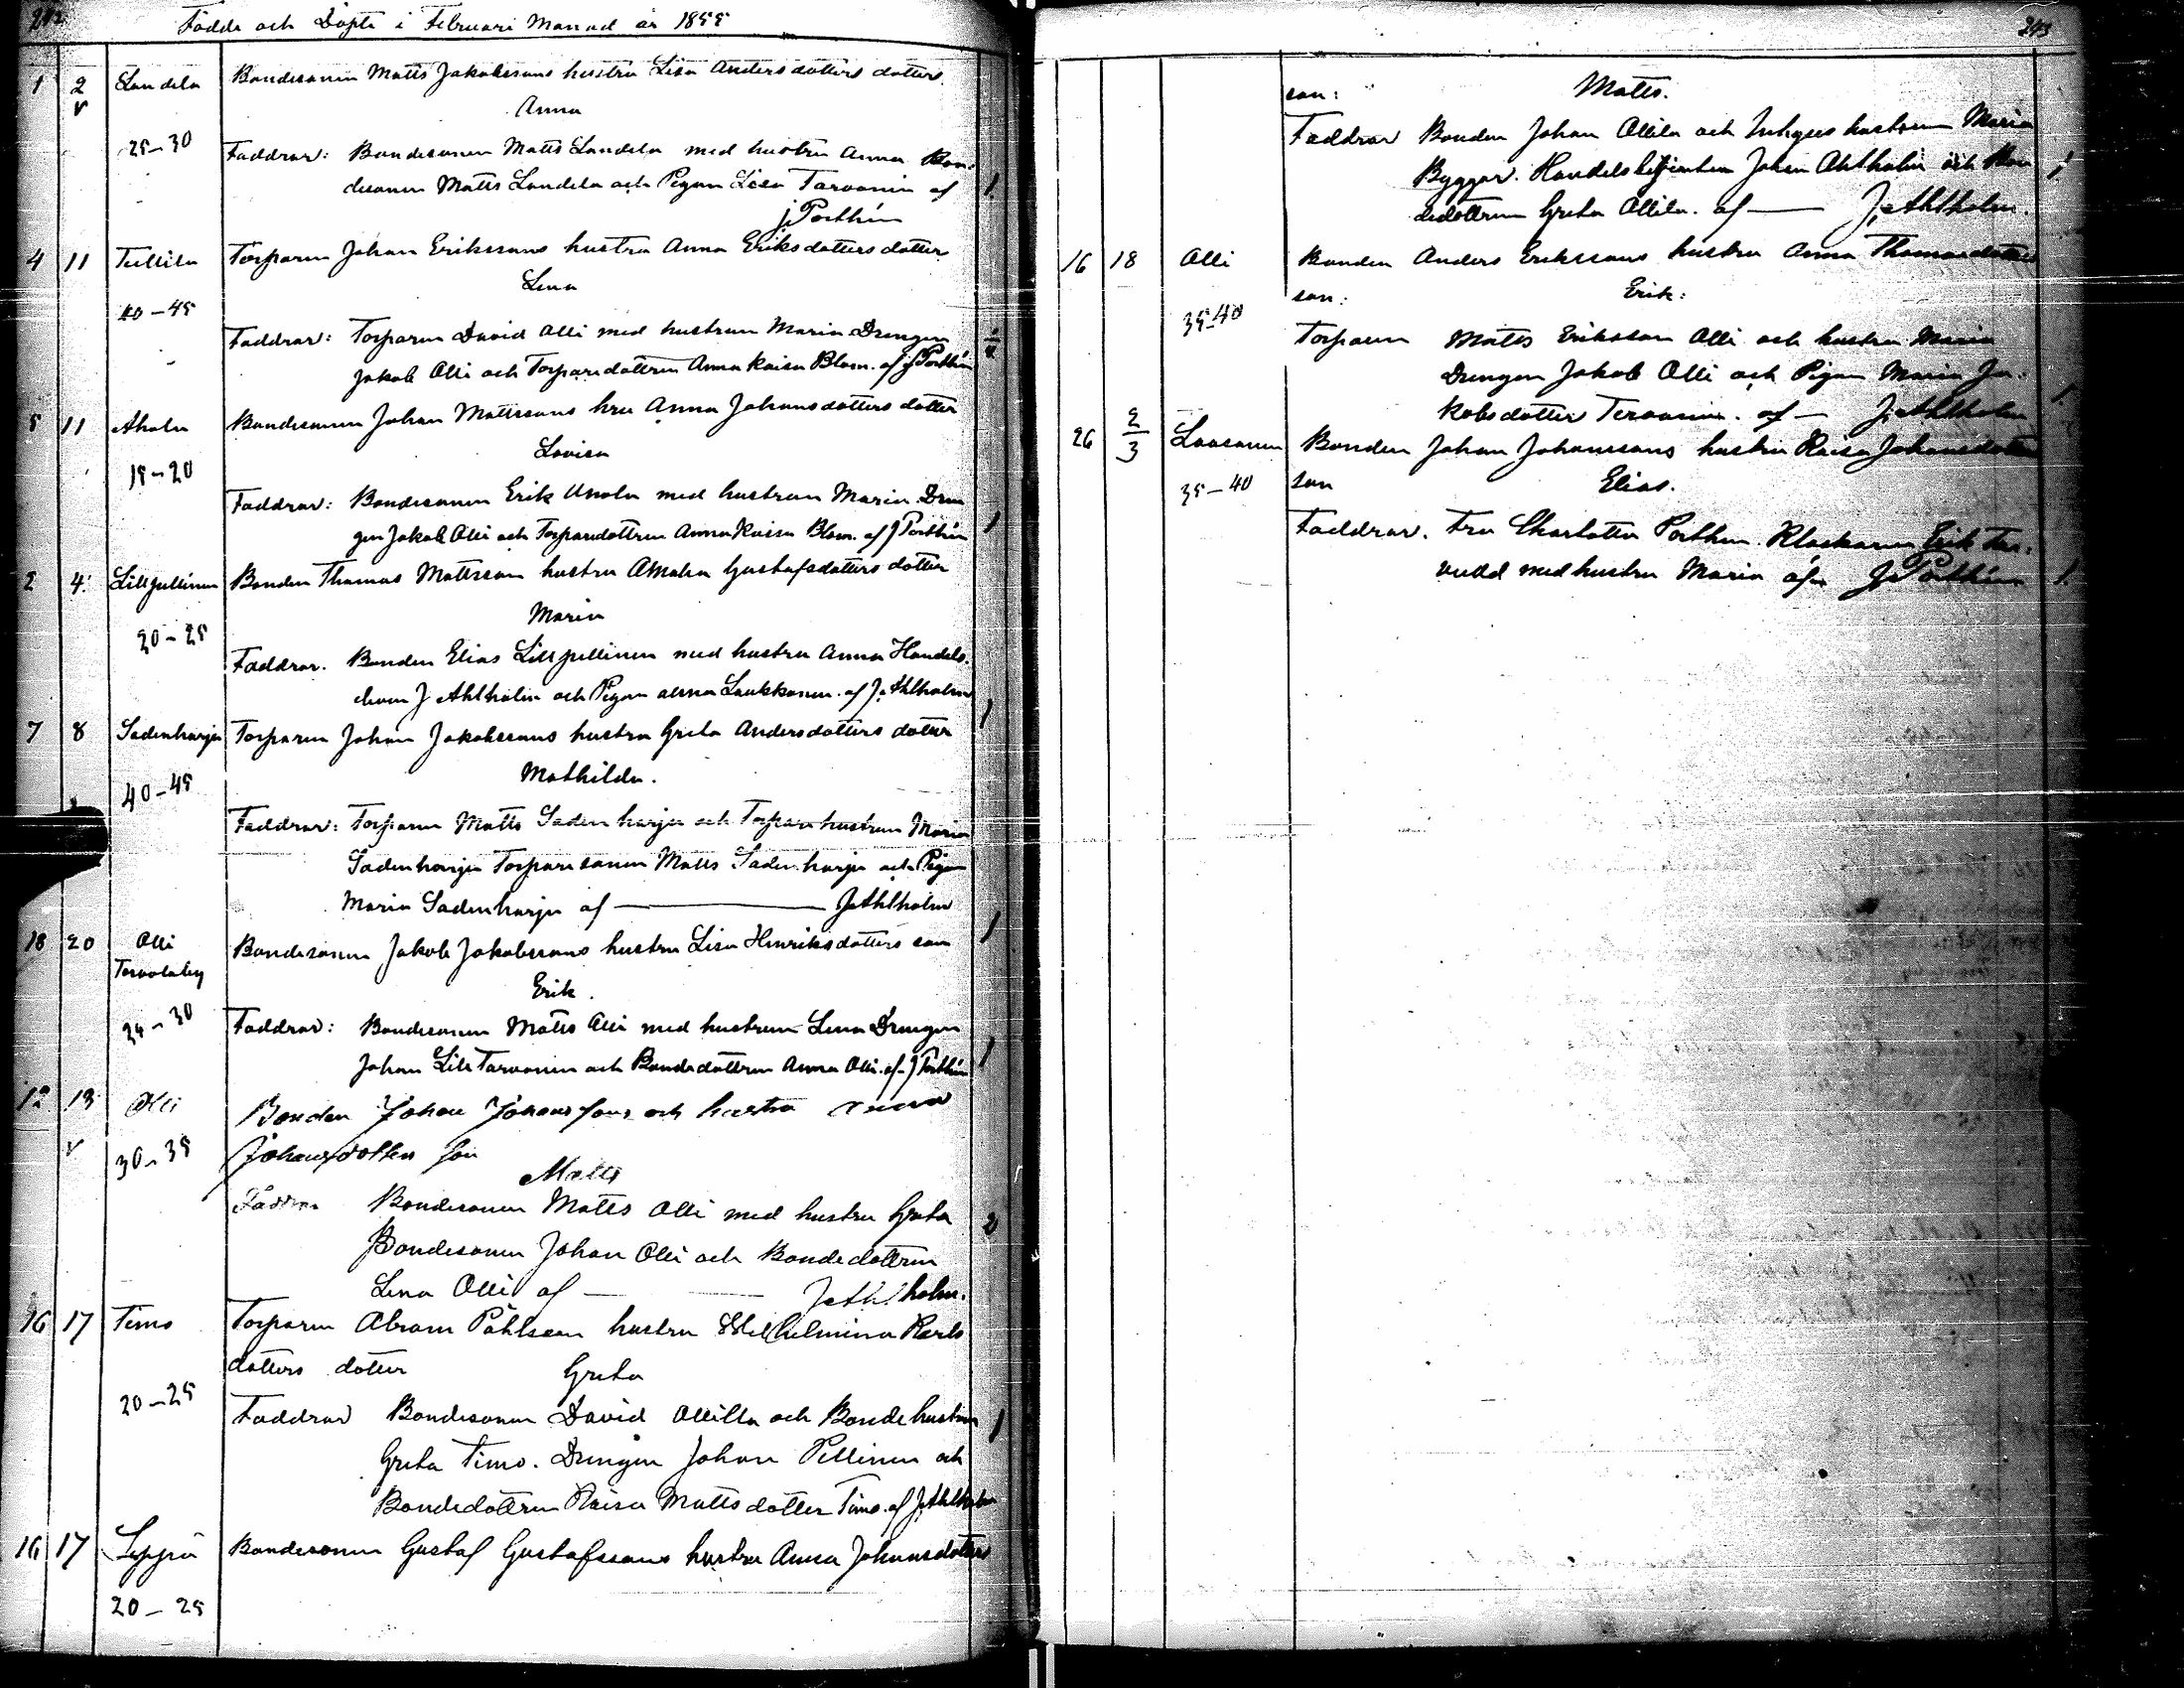 242
Födde och Döpte i Februari Månad år 1855
1 2 Landela Bondesonen Matts Jakobssons hustru Lisa Andersdotters dotter
Anna
25-30 Faddrar: Bondesonen Matts Landela med hustru Anna Bon-
desonen Matts Landela och Pigan Lisa Tarvonen af 1
J. Porthén
4 11 Tullila Torparen Johan Erikssons hustru Anna Eriksdotters dotter
Lena
40-45
Faddrar: Torparen David Olli med hustrun Maria Drengen
Jakob Olli och Torparedottren Anna Kaisa Blom. af J Porthén
5 11 Ahola Bondesonen Johan Mattssons hru Anna Johansdotters dotter
Lovisa
15-20
Faddrar: Bondesonen Erik Ahola med hustrun Maria Dren
gen Jakob Olli och Torparedottren Anna Kaisa Blom. af J Porthén 1
2 4 Lillpellinen Bonden Thomas Mattsson hustru Amalia Gustafsdotters dotter
Maria
20-25
Faddrar. Bonden Elias Lillpellinen med hustru Anna Handels-
J Ahlholm och Pigan Anna Laukkonen. af J. Ahlholm 1
7 8 Sadenharju Torparen Johan Jakobssons hustru Greta Andersdotters dotter
Mathilda.
40-45
Faddrar: Torparen Matts Sadenharju och Torpare hustrun Maria
Sadenharju Torparesonen Matts Sadenharju och Pigan
Maria Sadenharju af J Ahlholm 1
18 20 Olli Bondesonen Jakob Jakobssons hustru Lisa Henriksdotters son
Erik.
30 Faddrar: Bondesonen Matts Olli med hustrun Lena Drengen
Johan Lill Tarvonen och Bondedottren Anna Olli. af J Porthén 1
12 13 Olli Bonden Johan Johansson och hustru Anna
30-35 Johansdotters son
Matts
Faddrar Bondesonen Matts Olli med hustru Greta 2
Bondesonen Johan Olli och Bondedottren
Lena Olli af J Ahlholm.
16 17 Timo Torparen Abram Påhlsson hustru Wilhelmina Karls
dotters dotter Greta
20-25 Faddrar Bondesonen David Ollilla och Bondehustrun 1
Greta Timo. Drengen Johan Pellinen och
Bondedottren Kaisa Mattsdotter Timo. af J. Ahlholm
16 17 Seppä Bondesonen Gustaf Gustafssons hustru Anna Johansdotters
20-25
243
son: Matts.
Faddrar Bonden Johan Ollila och hustrun Maria
Byggar. Handelsbetjenten Johan Ahlholm och Bon
dedottren Greta Ollila. af J. Ahlholm. 1
16 18 Olli Bonden Anders Erikssons hustru Anna Thomasdotters
son: Erik:
35-40
Torparen Matts Eriksson Olli och hustru Maria
Drengen Jakob Olli och Pigan Maria Ja-
kobsdotter Tervonen. af J. Ahlholm 1
26 2/3 Laasanen Bonden Johan Johanssons hustru Kaisa Johansdotters
35-40 son Elias.
Faddrar. Fru Charlotta Porthén. Klockaren Erik
med hustru Maria af J. Porthén 1